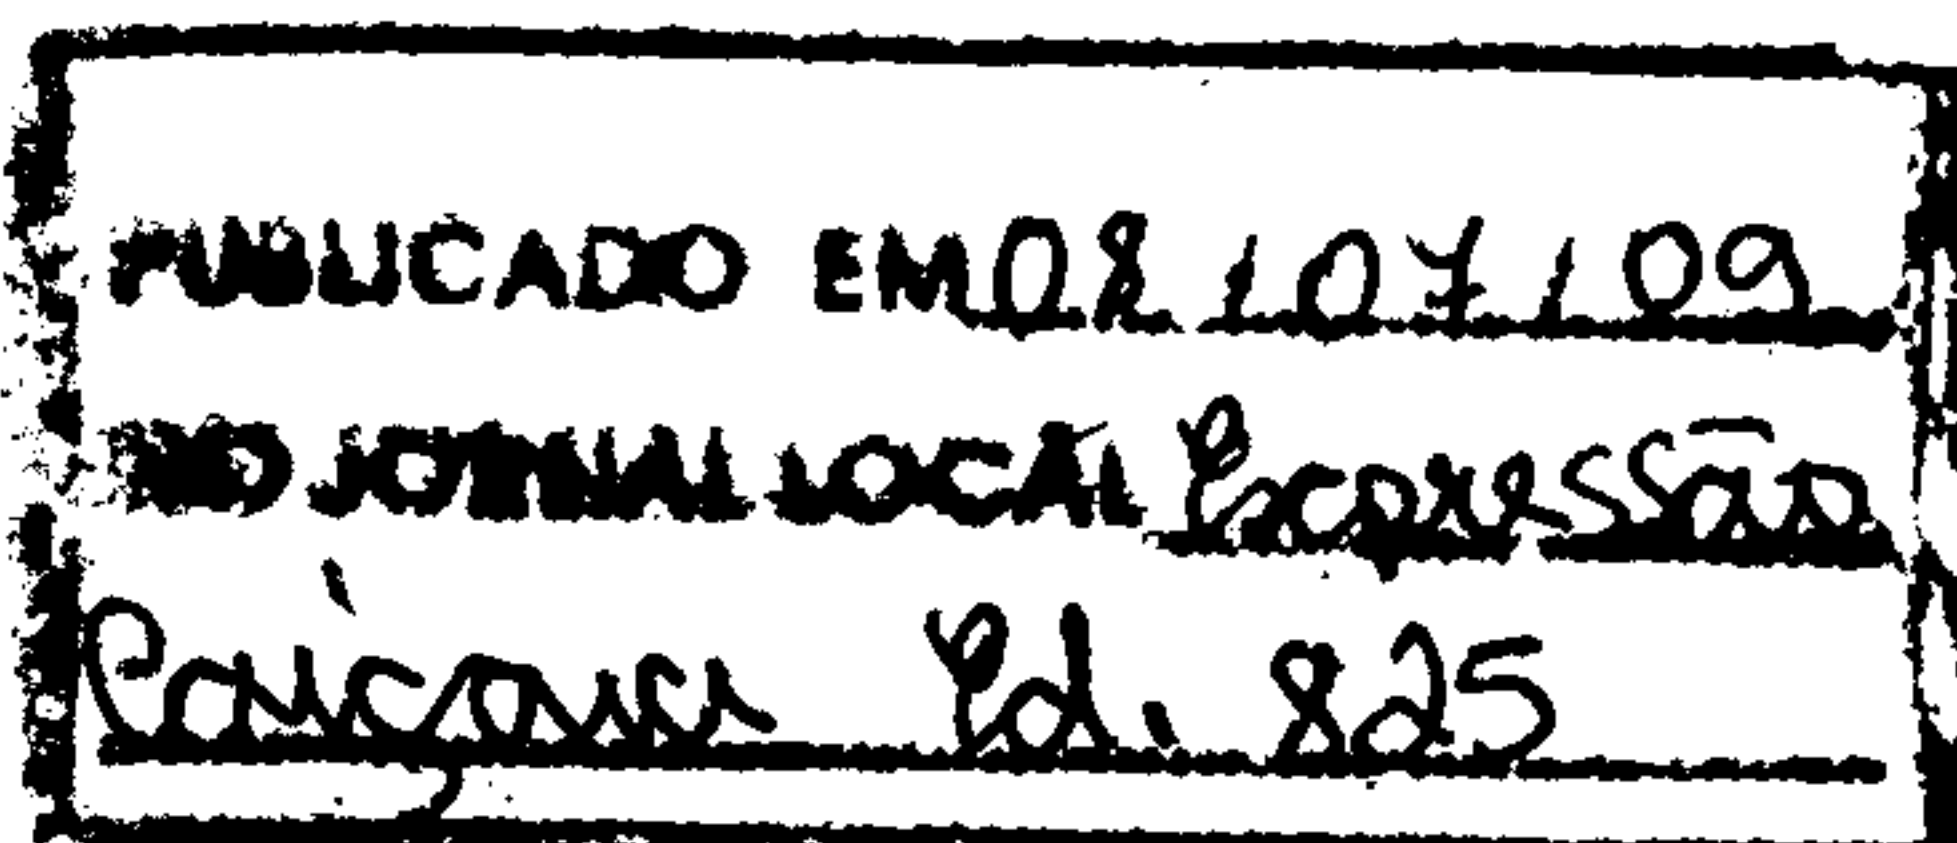 PUBLICADO EM 08/07/09
NO JORNAL LOCAL Expressão
Caiçara Ed. 825